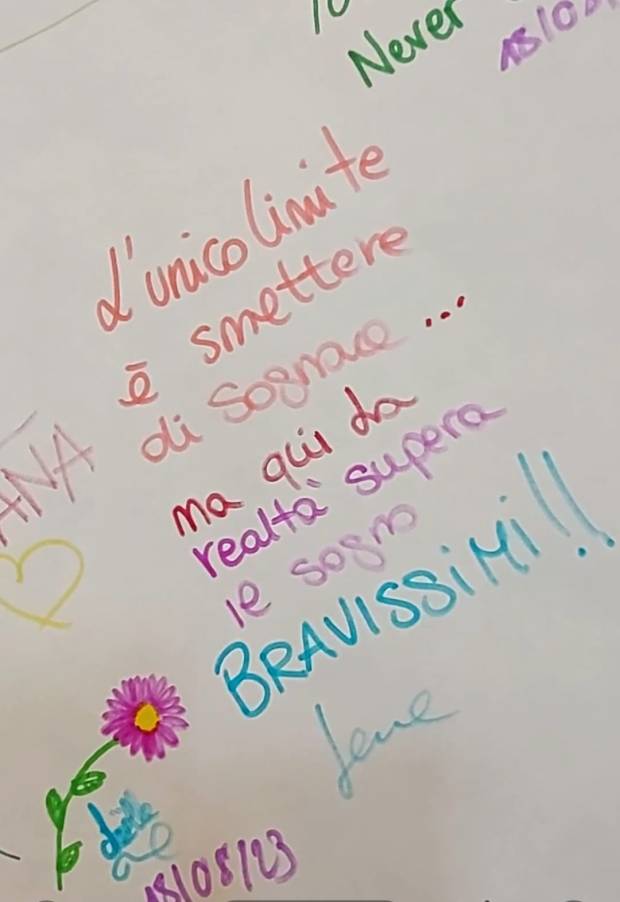 Never
L'unico limite
è smettere
di sognare...
ma qui la
realtà supera
le sogno
BRAVISSIMI!!
18/08/23